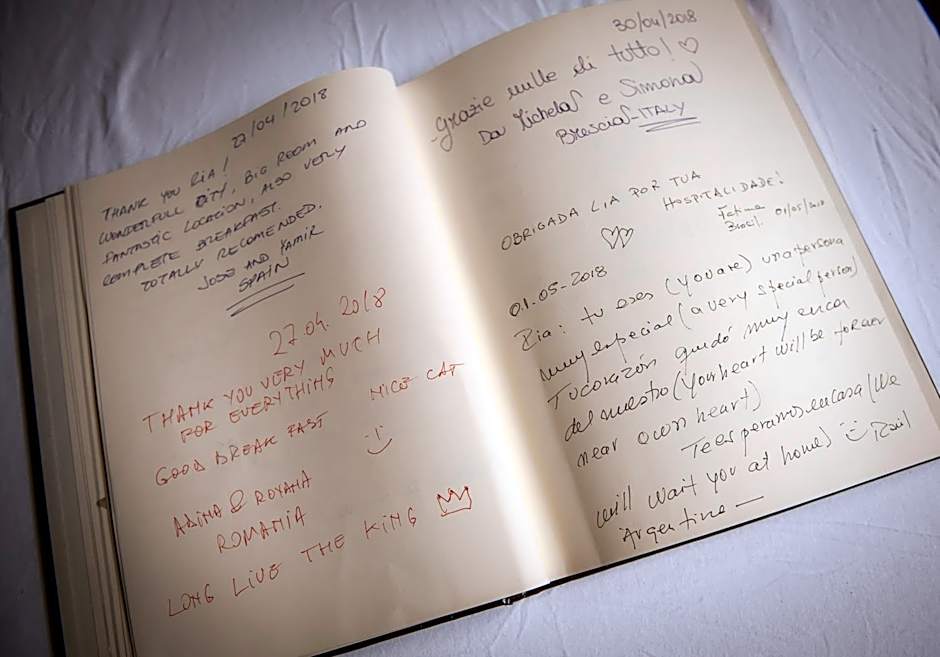 27/04/2018
THANK YOU RIA!
WONDERFULL CITY, BIG ROOM AND
FANTASTIC LOCACION, ALSO VERY
COMPLETE BREAKFAST.
TOTALLY RECOMENDED.
JOSE AND YAMIR
SPAIN
27.04.2018
THANK YOU VERY MUCH
FOR EVERYTHING
GOOD BREAK FAST NICE CAT
:)
ALINA & ROXANA
ROMANIA
LONG LIVE THE KING
30/04/2018
Grazie mille di tutto! ♡
Da Michela e Simona
Brescia - ITALY
OBRIGADA LIA POR TUA
HOSPITALIDADE!
Fatima
Brasil 01/05/2018
01.05-2018
Ria: tu eres (you are) una persona
muy especial (a very special person)
Tu corazón quedó muy cerca
del nuestro (your heart will be forever
near own heart)
Te esperamos en casa (We
will wait you at home) :) Raúl
Argentina